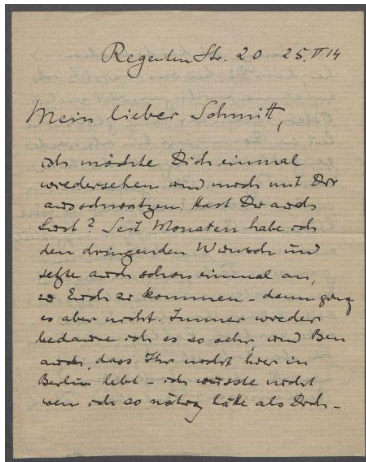 Regenten Str. 20 25. V 14
Mein lieber Schmitt,
ich möchte Dich einmal
wiedersehen und mich mit Dir
ausschwatzen. Hast Du auch
Lust? Seit Monaten habe ich
den dringenden Wunsch und
setzte auch schon einmal an,
zu Euch zu kommen – dann ging
es aber nicht. Immer wieder
bedaure ich es so sehr, und Ben
auch, dass Ihr nicht hier in
Berlin lebt – ich wüsste nicht
wen ich so nötig hätte als Dich –